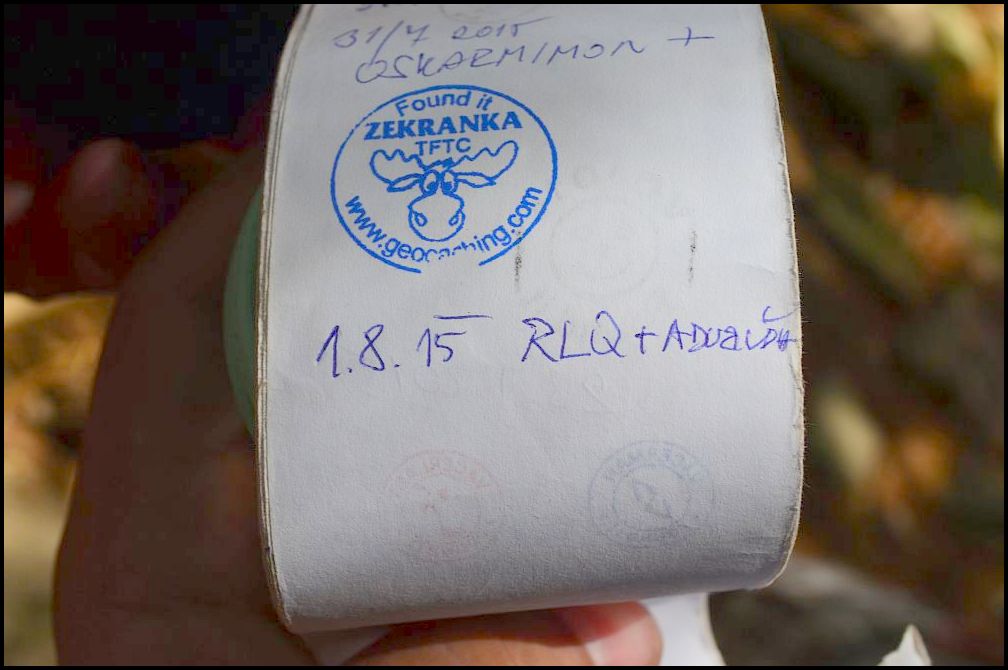 31/7 2015
OSKARMIMON +
Found it
ZEKRANKA
TFTC
www.geocaching.com
1.8.15 RLQ +